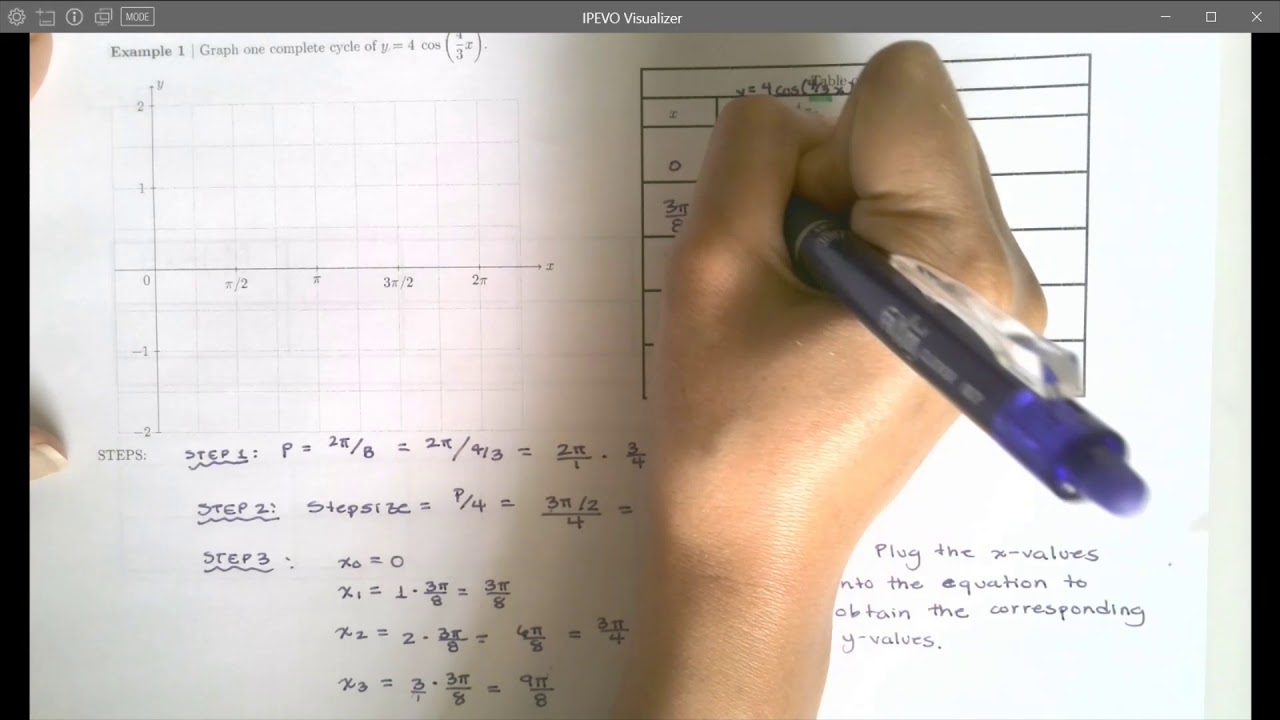 MODE
IPEVO Visualizer
Example 1 | Graph one complete cycle of y = 4 cos (4/3 x).
y
2
1
0
π/2
π
3π/2
2π
x
−1
−2
Table
y = 4 cos(4/3 x)
x
0
3π/8
STEPS:
STEP 1: P = 2π/B = 2π/4/3 = 2π/1 · 3/4
STEP 2: Stepsize = P/4 = 3π/2/4 =
STEP 3: x₀ = 0
x₁ = 1 · 3π/8 = 3π/8
x₂ = 2 · 3π/8 = 6π/8 = 3π/4
x₃ = 3/1 · 3π/8 = 9π/8
Plug the x-values
nto the equation to
obtain the corresponding
y-values.